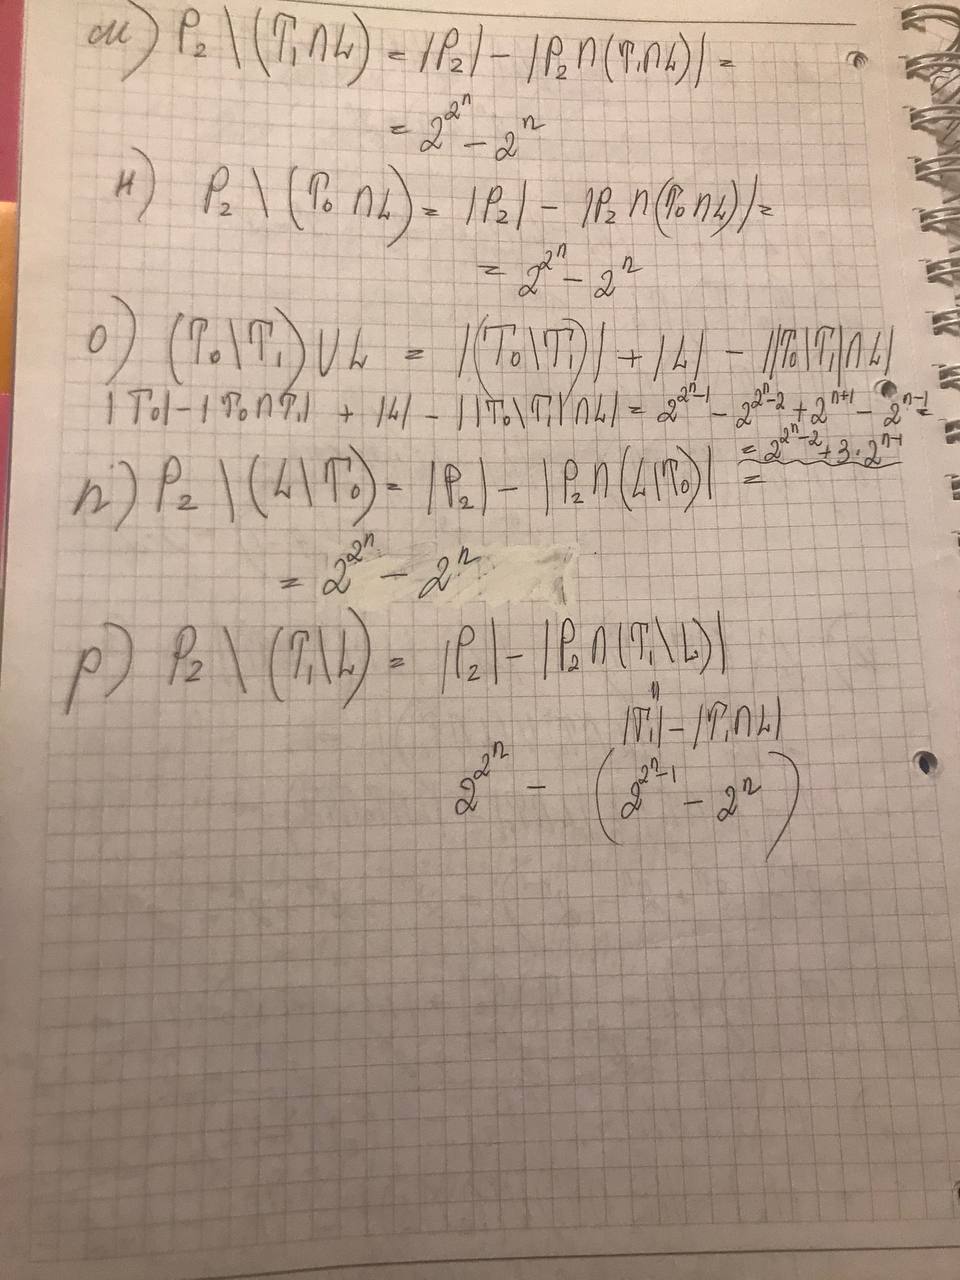 м) P₂ \ (T₁∩L) = |P₂| − |P₂∩(T₁∩L)| =
= 2^{2^n} − 2^n
н) P₂ \ (T₀ ∩L) = |P₂| − |P₂∩(T₀∩L)| =
= 2^{2^n} − 2^n
о) (T₀\T₁) ∪ L = |(T₀\T₁)| + |L| − ||T₀\T₁|∩L|
|T₀| − |T₀∩T₁| + |L| − ||T₀\T₁|∩L| = 2^{2^n−1} − 2^{2^n−2} + 2^{n+1} − 2^{n−1} =
= 2^{2^n−2} + 3·2^{n−1}
п) P₂ \ (L\T₀) = |P₂| − |P₂∩(L\T₀)| =
= 2^{2^n} − 2^n
р) P₂ \ (T₁\L) = |P₂| − |P₂∩(T₁\L)|
"
|T₁| − |T₁∩L|
2^{2^n} − (2^{2^n−1} − 2^n)